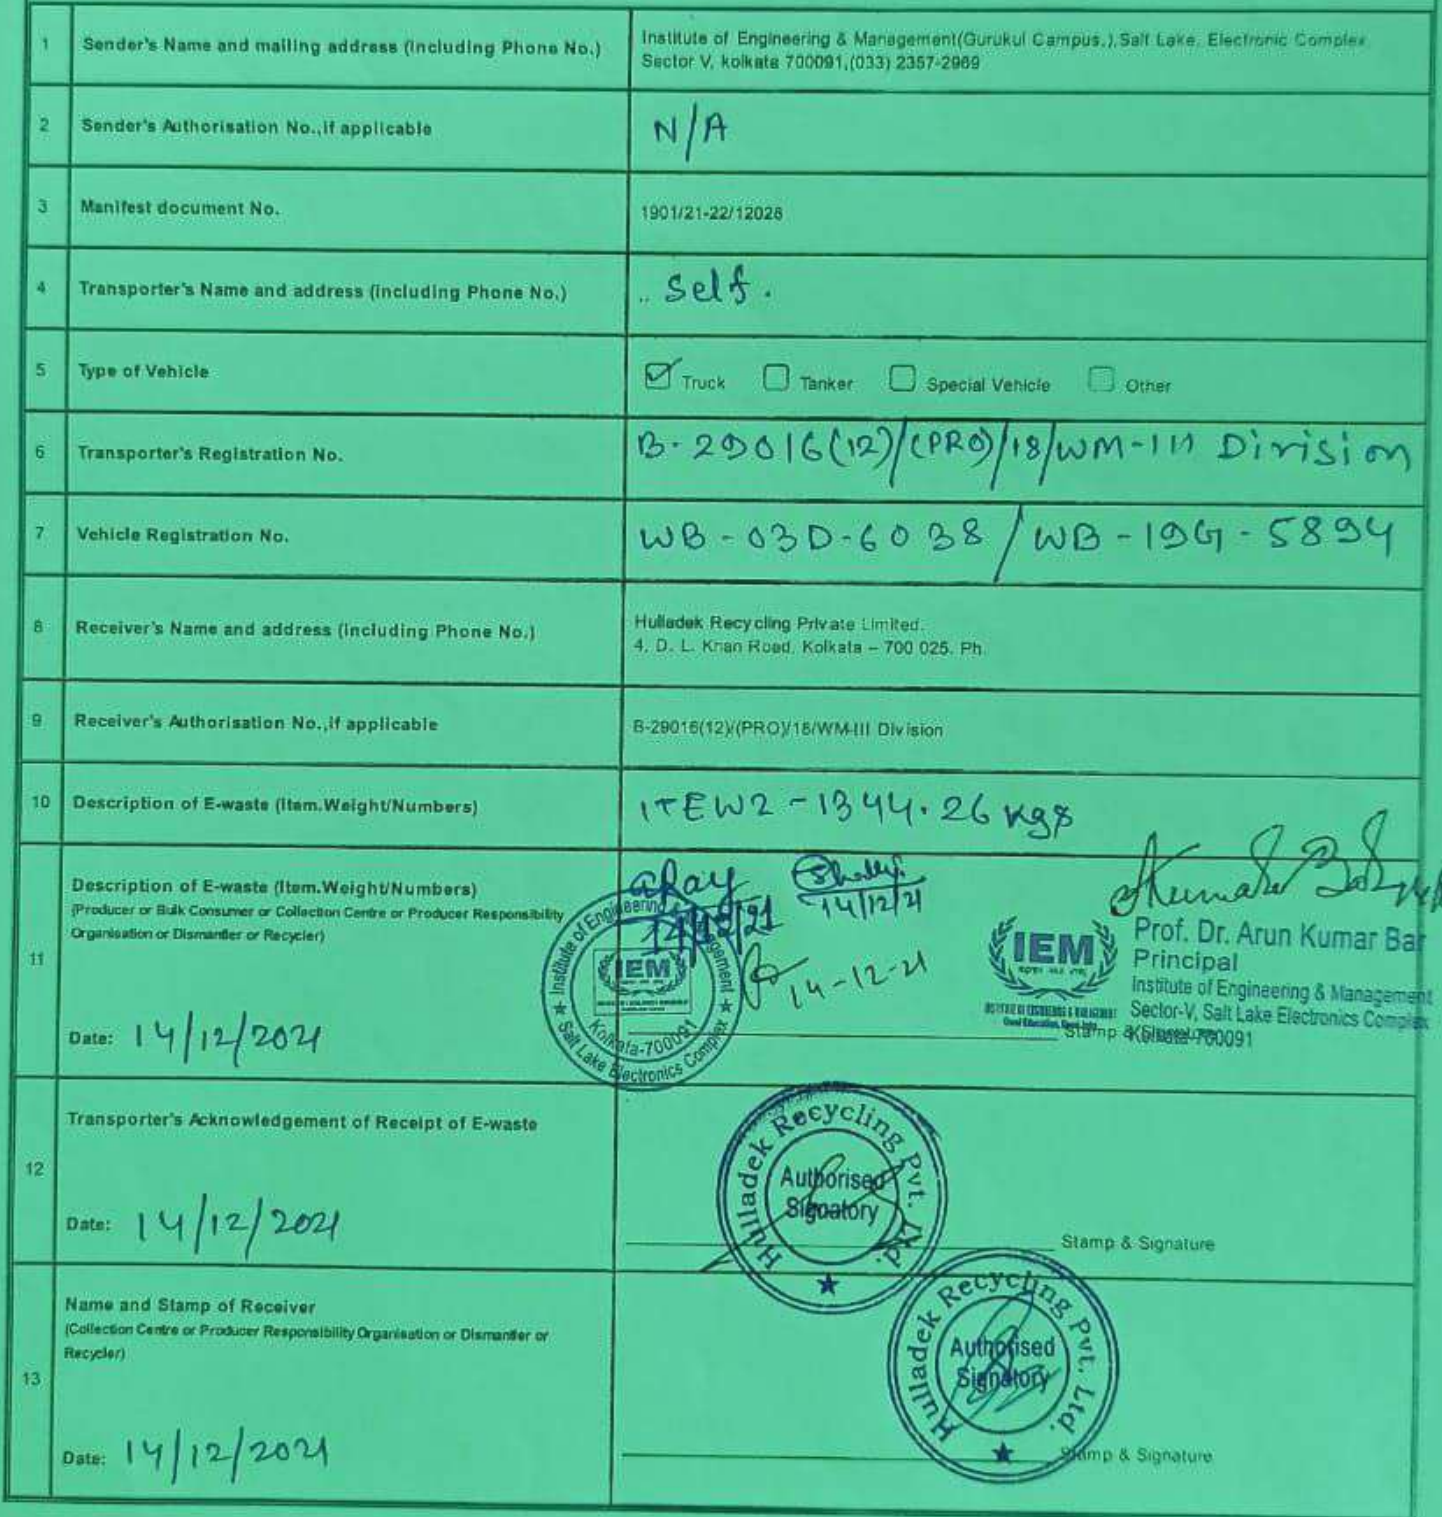 1 Sender's Name and mailing address (including Phone No.) Institute of Engineering & Management(Gurukul Campus,),Salt Lake, Electronic Complex,
Sector V, kolkata 700091,(033) 2357-2969
2 Sender's Authorisation No.,if applicable N/A
3 Manifest document No. 1901/21-22/12026
4 Transporter's Name and address (including Phone No.) Self.
5 Type of Vehicle Truck Tanker Special Vehicle Other
6 Transporter's Registration No. B-29016(12)/(PRO)/18/WM-III Division
7 Vehicle Registration No. WB-03D-6038/WB-19G-5894
8 Receiver's Name and address (including Phone No.) Hulladek Recycling Private Limited.
4, D. L. Khan Road, Kolkata – 700 025. Ph.
9 Receiver's Authorisation No.,if applicable B-29016(12)/(PRO)/18/WM-III Division
10 Description of E-waste (Item.Weight/Numbers) ITEW2-1344.26 Kgs
11 Description of E-waste (Item.Weight/Numbers)
(Producer or Bulk Consumer or Collection Centre or Producer Responsibility
Organisation or Dismantler or Recycler)
Date: 14/12/2021
14/12/21
14/12/21
14-12-21
Institute of Engineering & Management
IEM
Kolkata-700091
Salt Lake Electronics Complex
IEM
Prof. Dr. Arun Kumar Bar
Principal
Institute of Engineering & Management
Sector-V, Salt Lake Electronics Complex
Kolkata-700091
Stamp & Signature
12 Transporter's Acknowledgement of Receipt of E-waste
Date: 14/12/2021
Hulladek Recycling Pvt. Ltd.
Authorised
Signatory
Stamp & Signature
13 Name and Stamp of Receiver
(Collection Centre or Producer Responsibility Organisation or Dismantler or
Recycler)
Date: 14/12/2021
Hulladek Recycling Pvt. Ltd.
Authorised
Signatory
Stamp & Signature